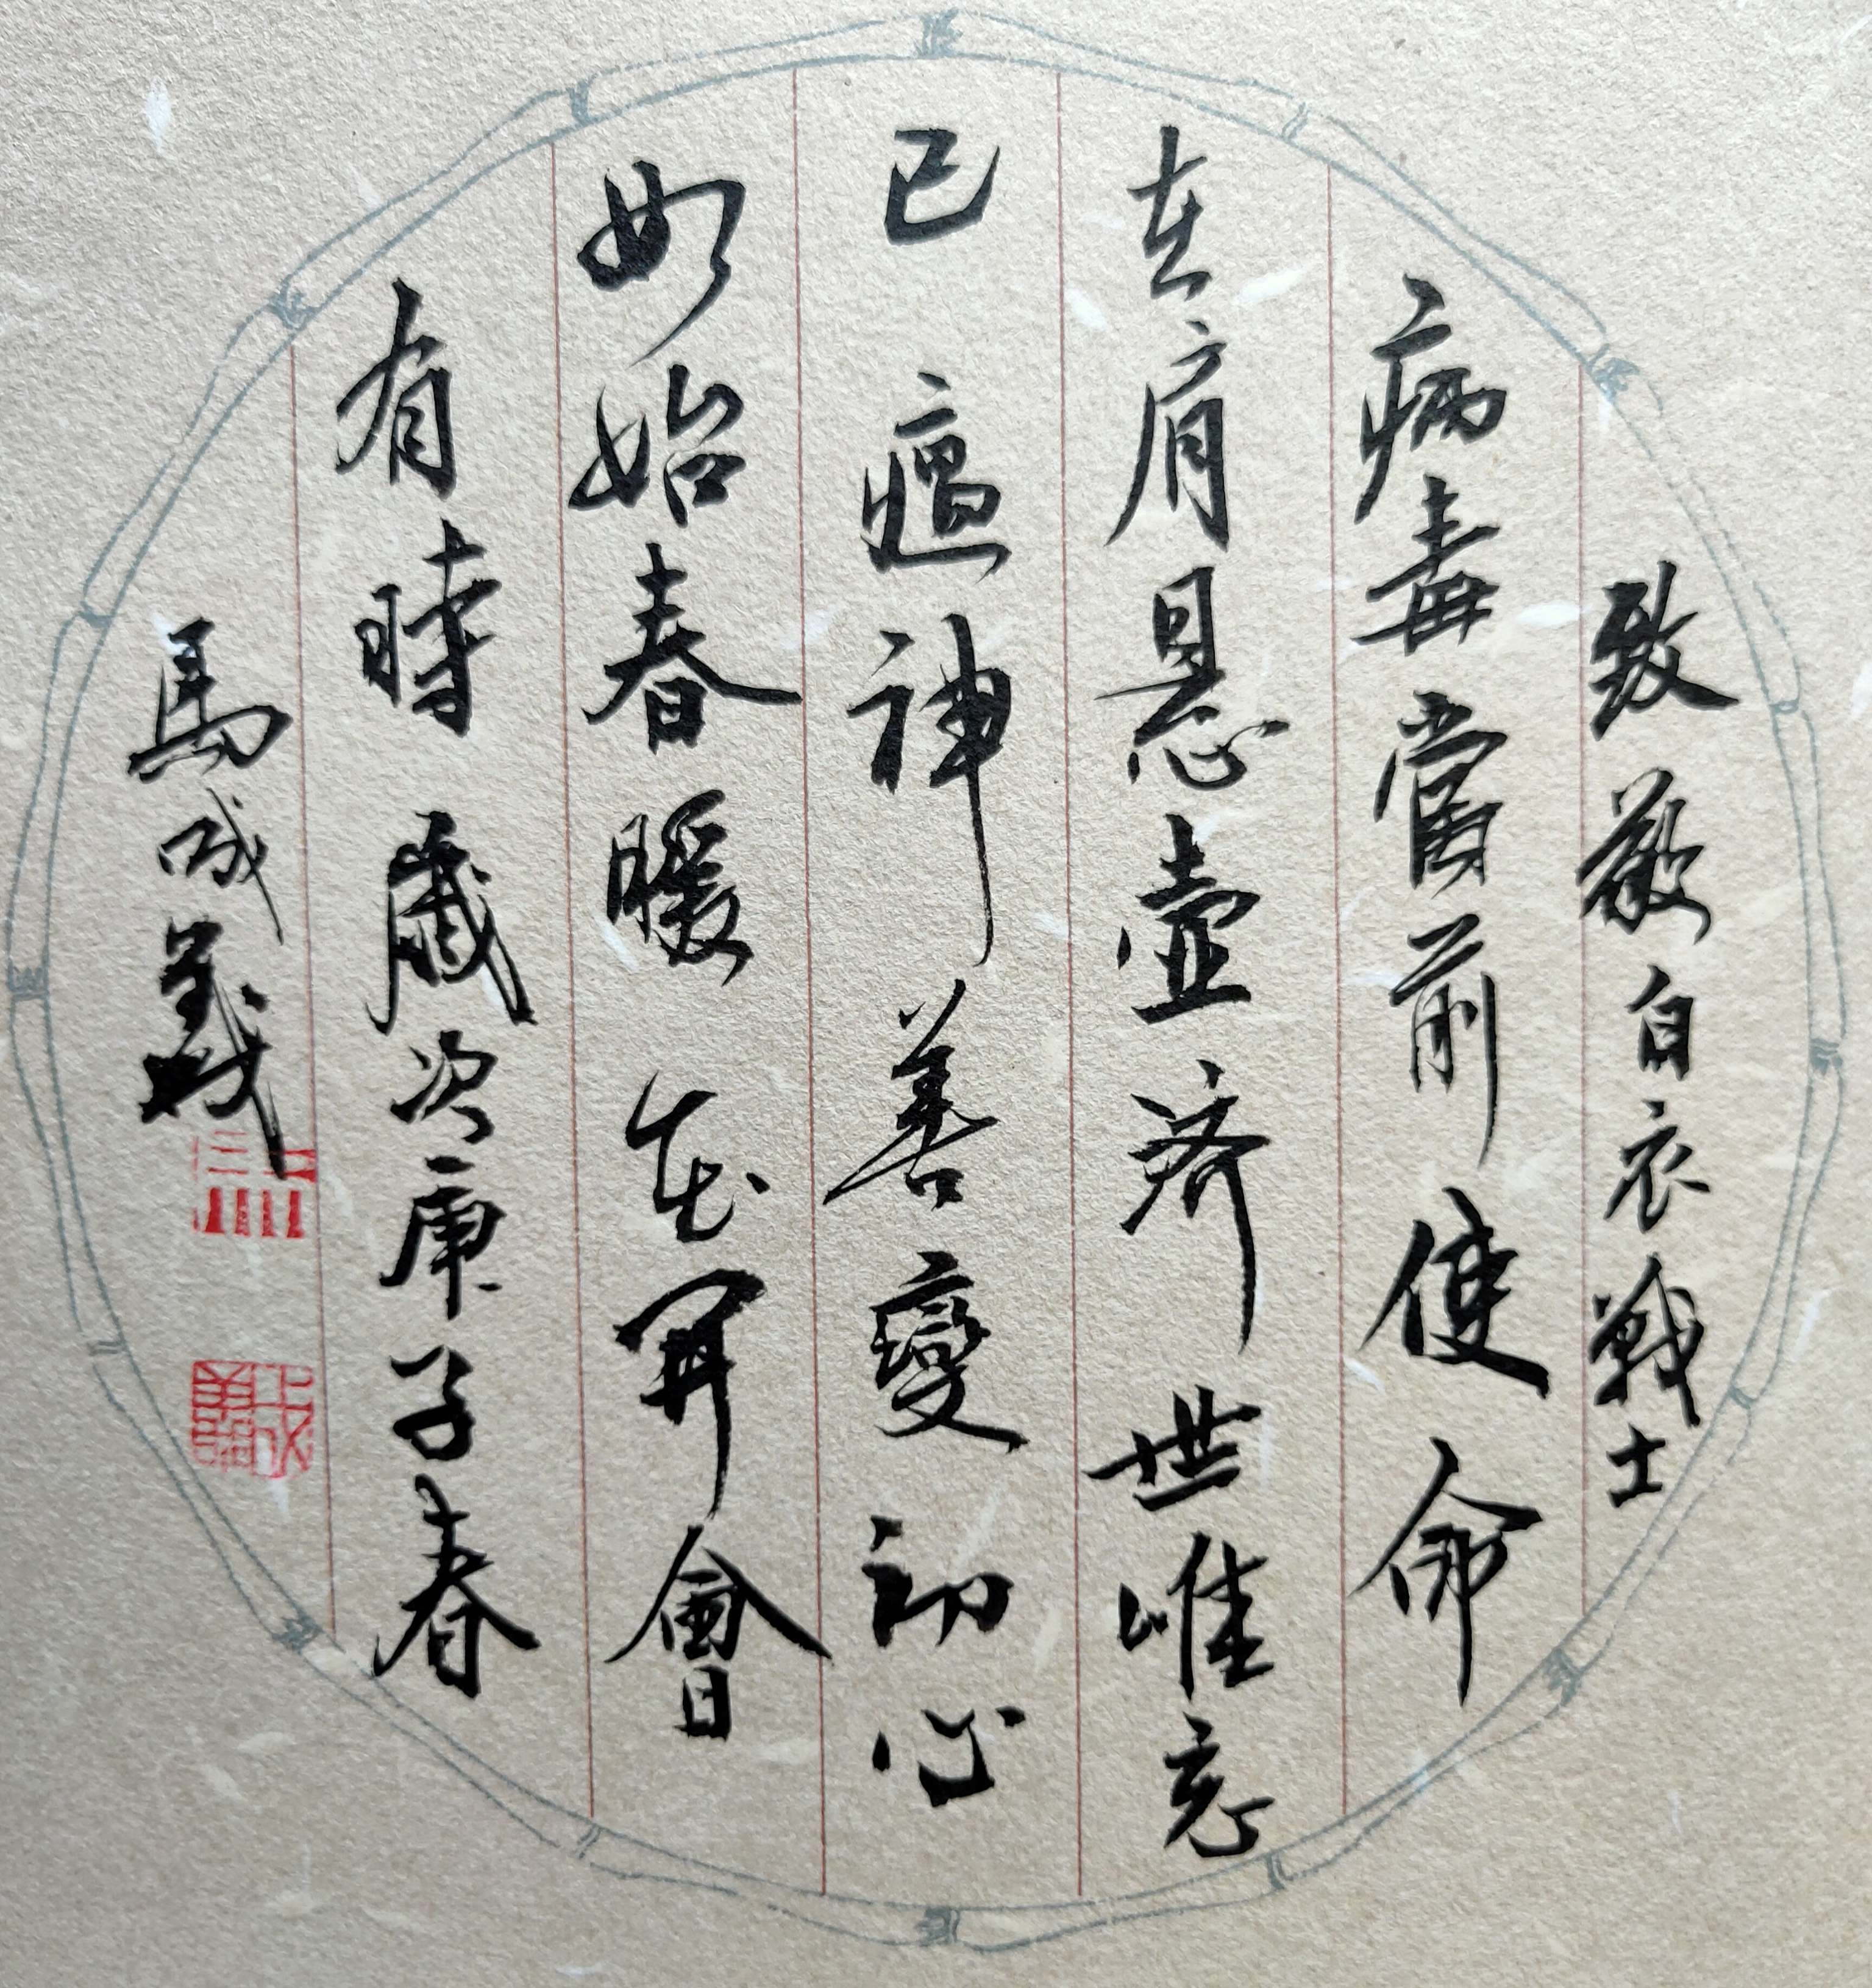 致敬白衣戰士
病毒當前使命
在肩悬壶济世唯忘
己瘟神善變初心
如始春暖花開會
有時歲次庚子春
馬成義